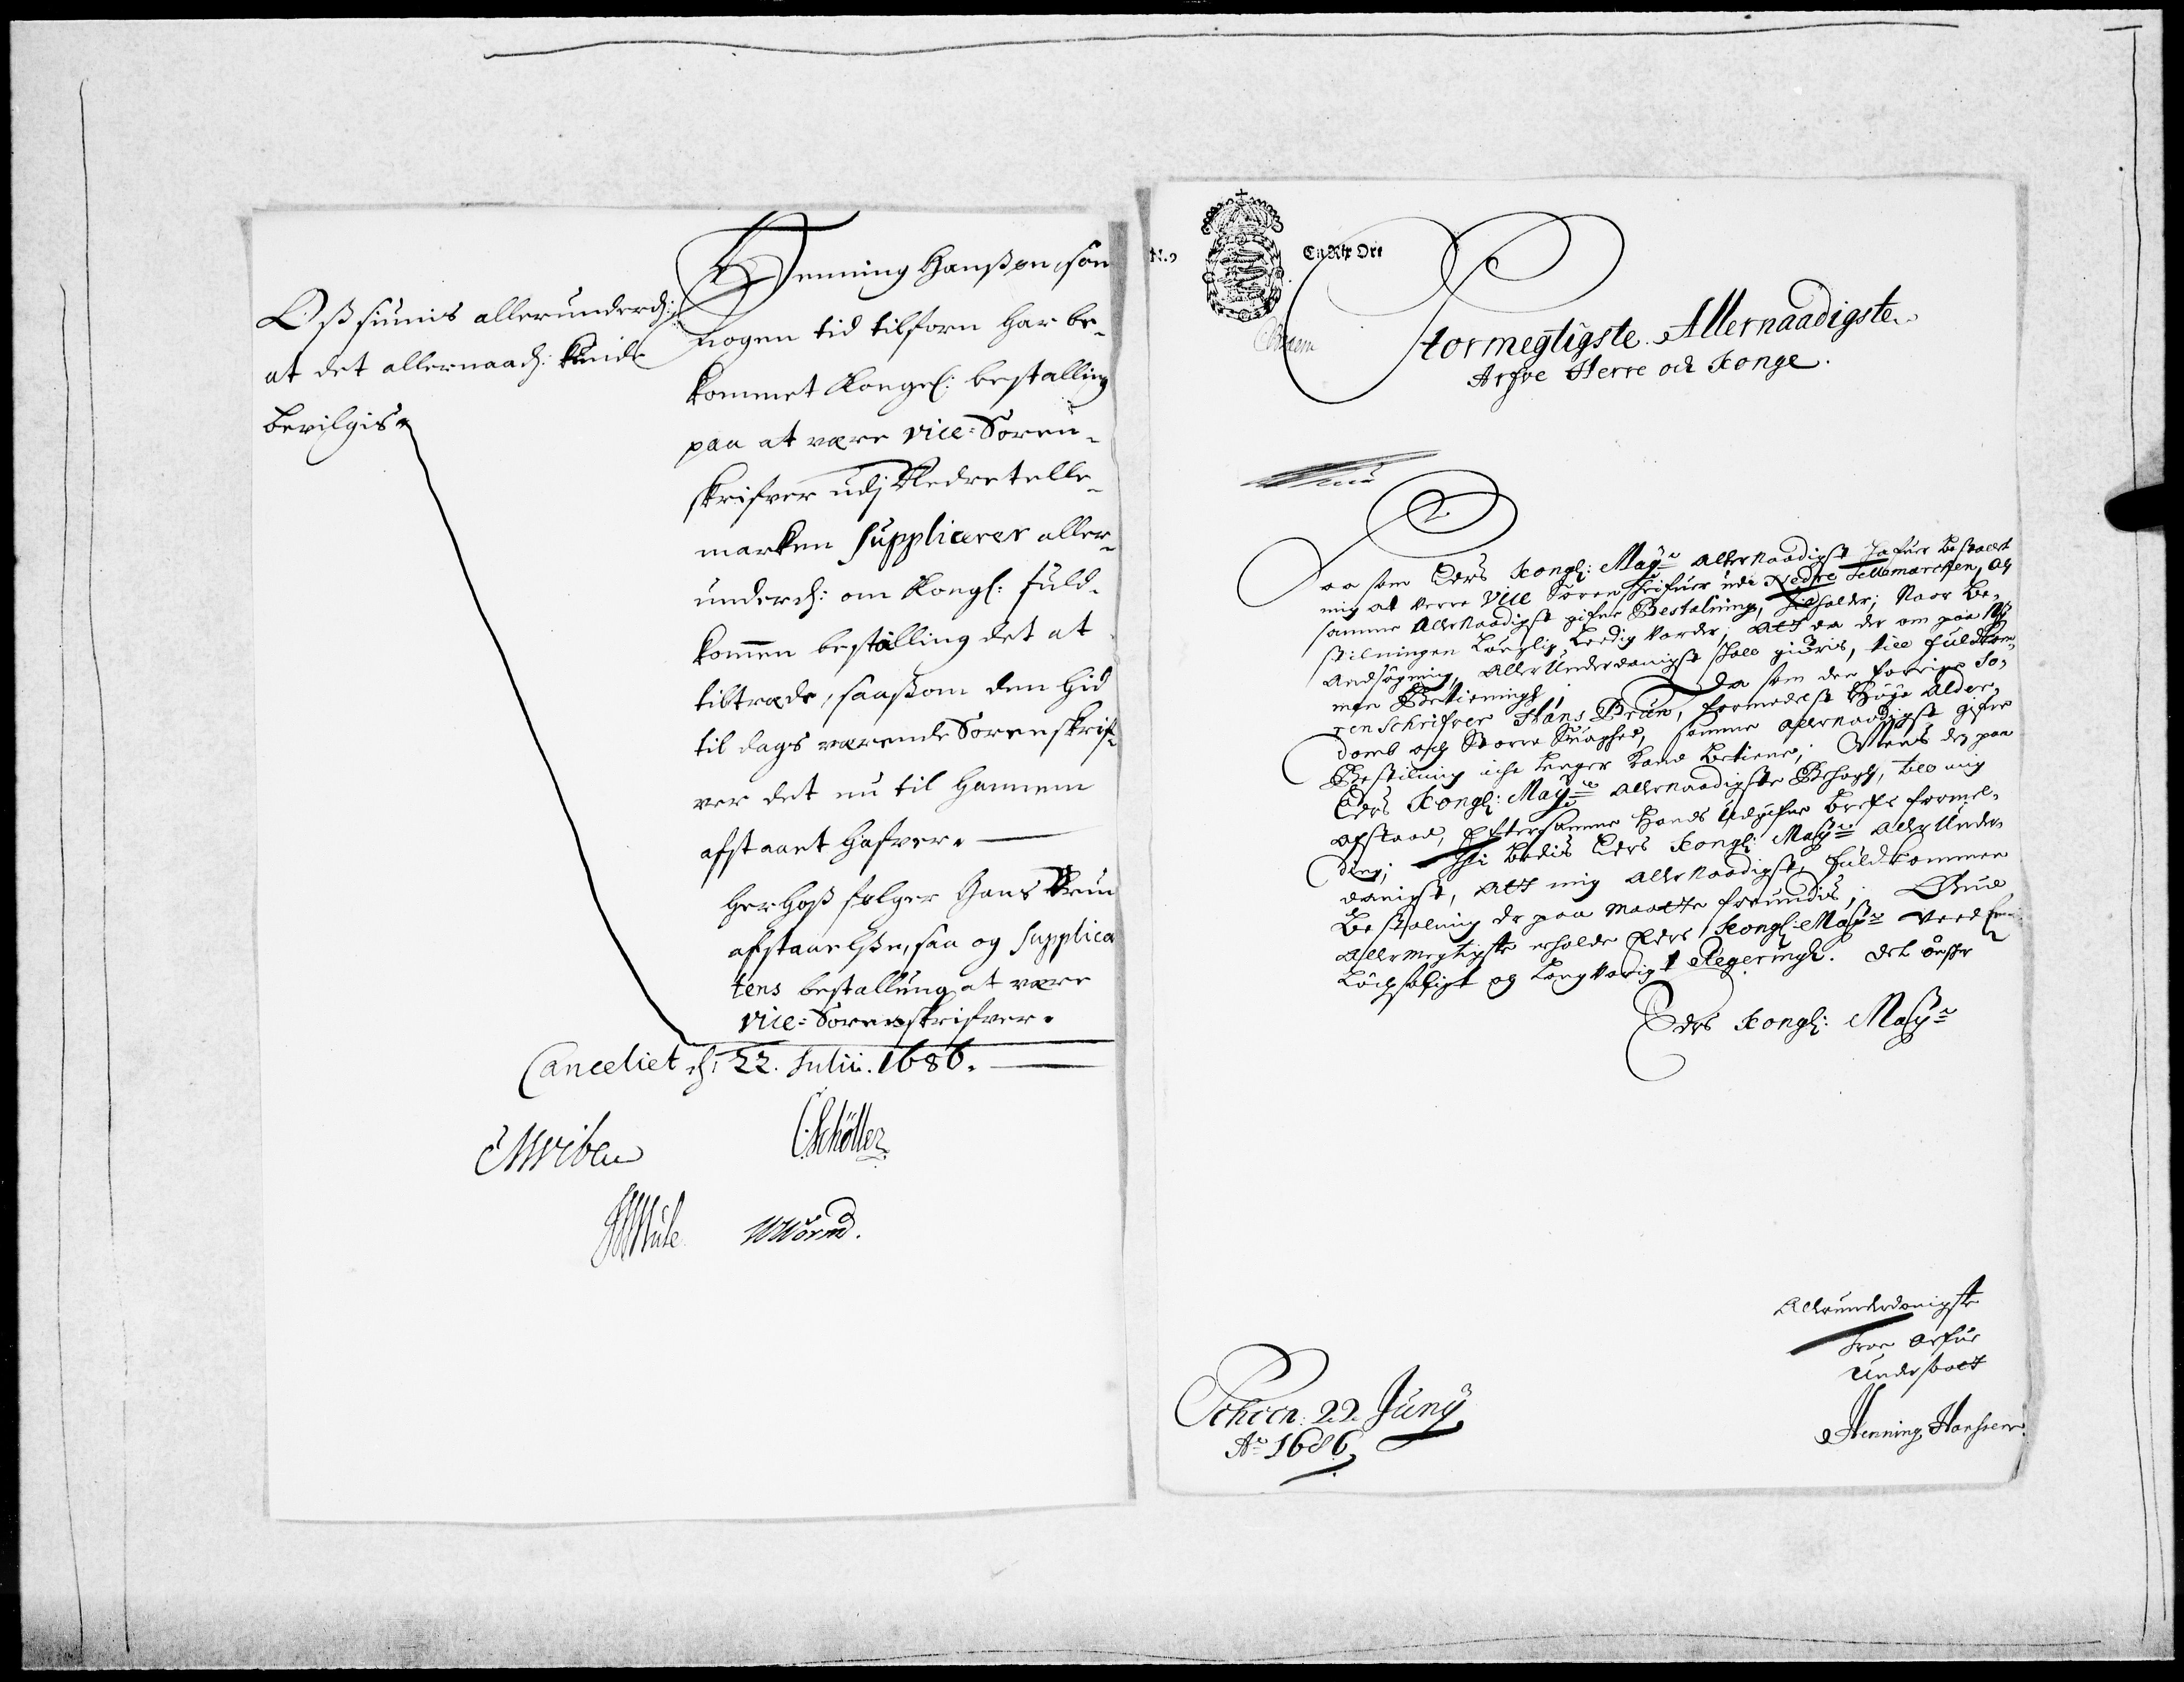 Oß siunis allerunderd:
at det allernaad: kunde
bevilgis.
Henning Hanßøn, som
nogen tid tilforn har be-
kommet Kongel: bestalling
paa at være vice-Soren-
skrifver udj Nedretelle-
marken supplicerer aller-
underd: om Kongl: fuld-
kommen bestalling det at
tiltræde, saasom den hid
til dags værende Sorenskrif-
ver det nu til hannem
afstaaet hafver.
Herhoß følger Hans Brun
afstaaelße, saa og supplica
tens bestalling at være
vice-Sorenskrifver.
Canceliet d: 22. Julii. 1686.
MWiben
C: Schöller
Mule
WWorm.
N. 9
En Rdr Ort
Stormegtigste Allernaadigste
Arfve Herre och Konge.
Saa som Eders Kongl: May: Allernaadigst hafuer bestaelt
mig at verre Vice Sorenschrifuer udi Nedre Tellemarcken, og
samme Allernaadigst gifne Bestalning, holder; Naar Be-
stilningen Leedig vorder, Att da der om paa Ny
Andsøgning Allerunderdanigst schall giøris, till fuldkom-
men Betienningh; Da som den forrige So-
renschrifver Hans Brun, formedelst Høye Alder-
domb och Store Suaghed, samme allernaadigst gifne
Bestilning iche lenger kand betiene, Mens den paa
Eders Kongl: May: allernaadigste Behagh, till mig
afstaaed, Efter samme Hands udgifne brefs formel-
ding; Thi bedis Eders Kongl: May: Allerunder-
danigst, Att mig Allernaadigst fuldkommen
Bestalning der paa maatte forundis; Gud
Allermegtigste erholde Eders Kongl: May: ved
Løchsaligt og Langvarigt Regeringh. Det ønsker
Eders Kongl: May:
Allerunderdanigste
troe arfue
Undersaatt
Henning Hanssen
Scheen: 22 Junij
Ao 1686